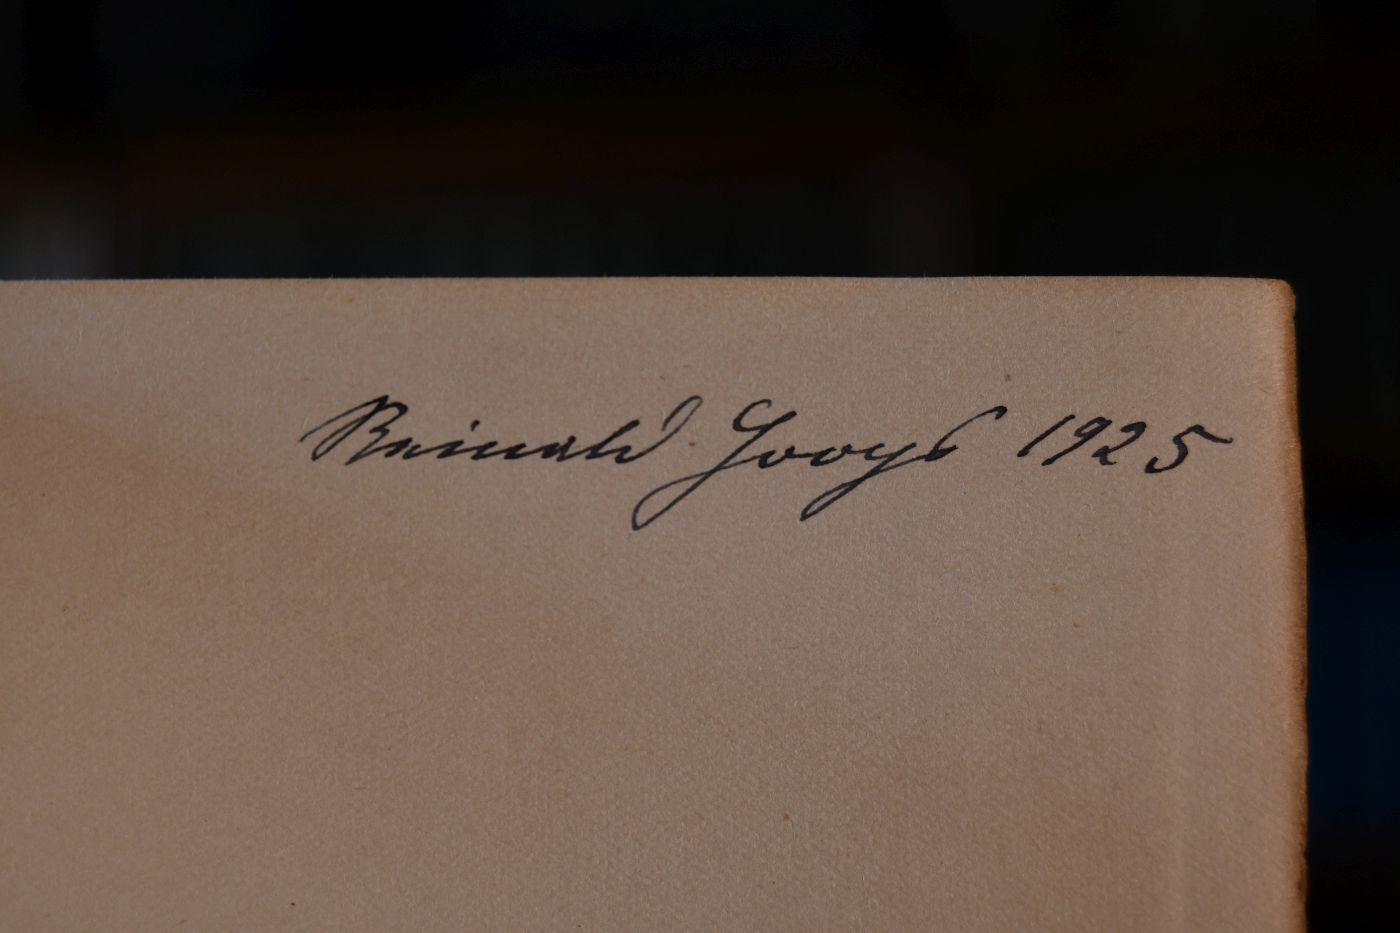 Reinald Hoops 1925